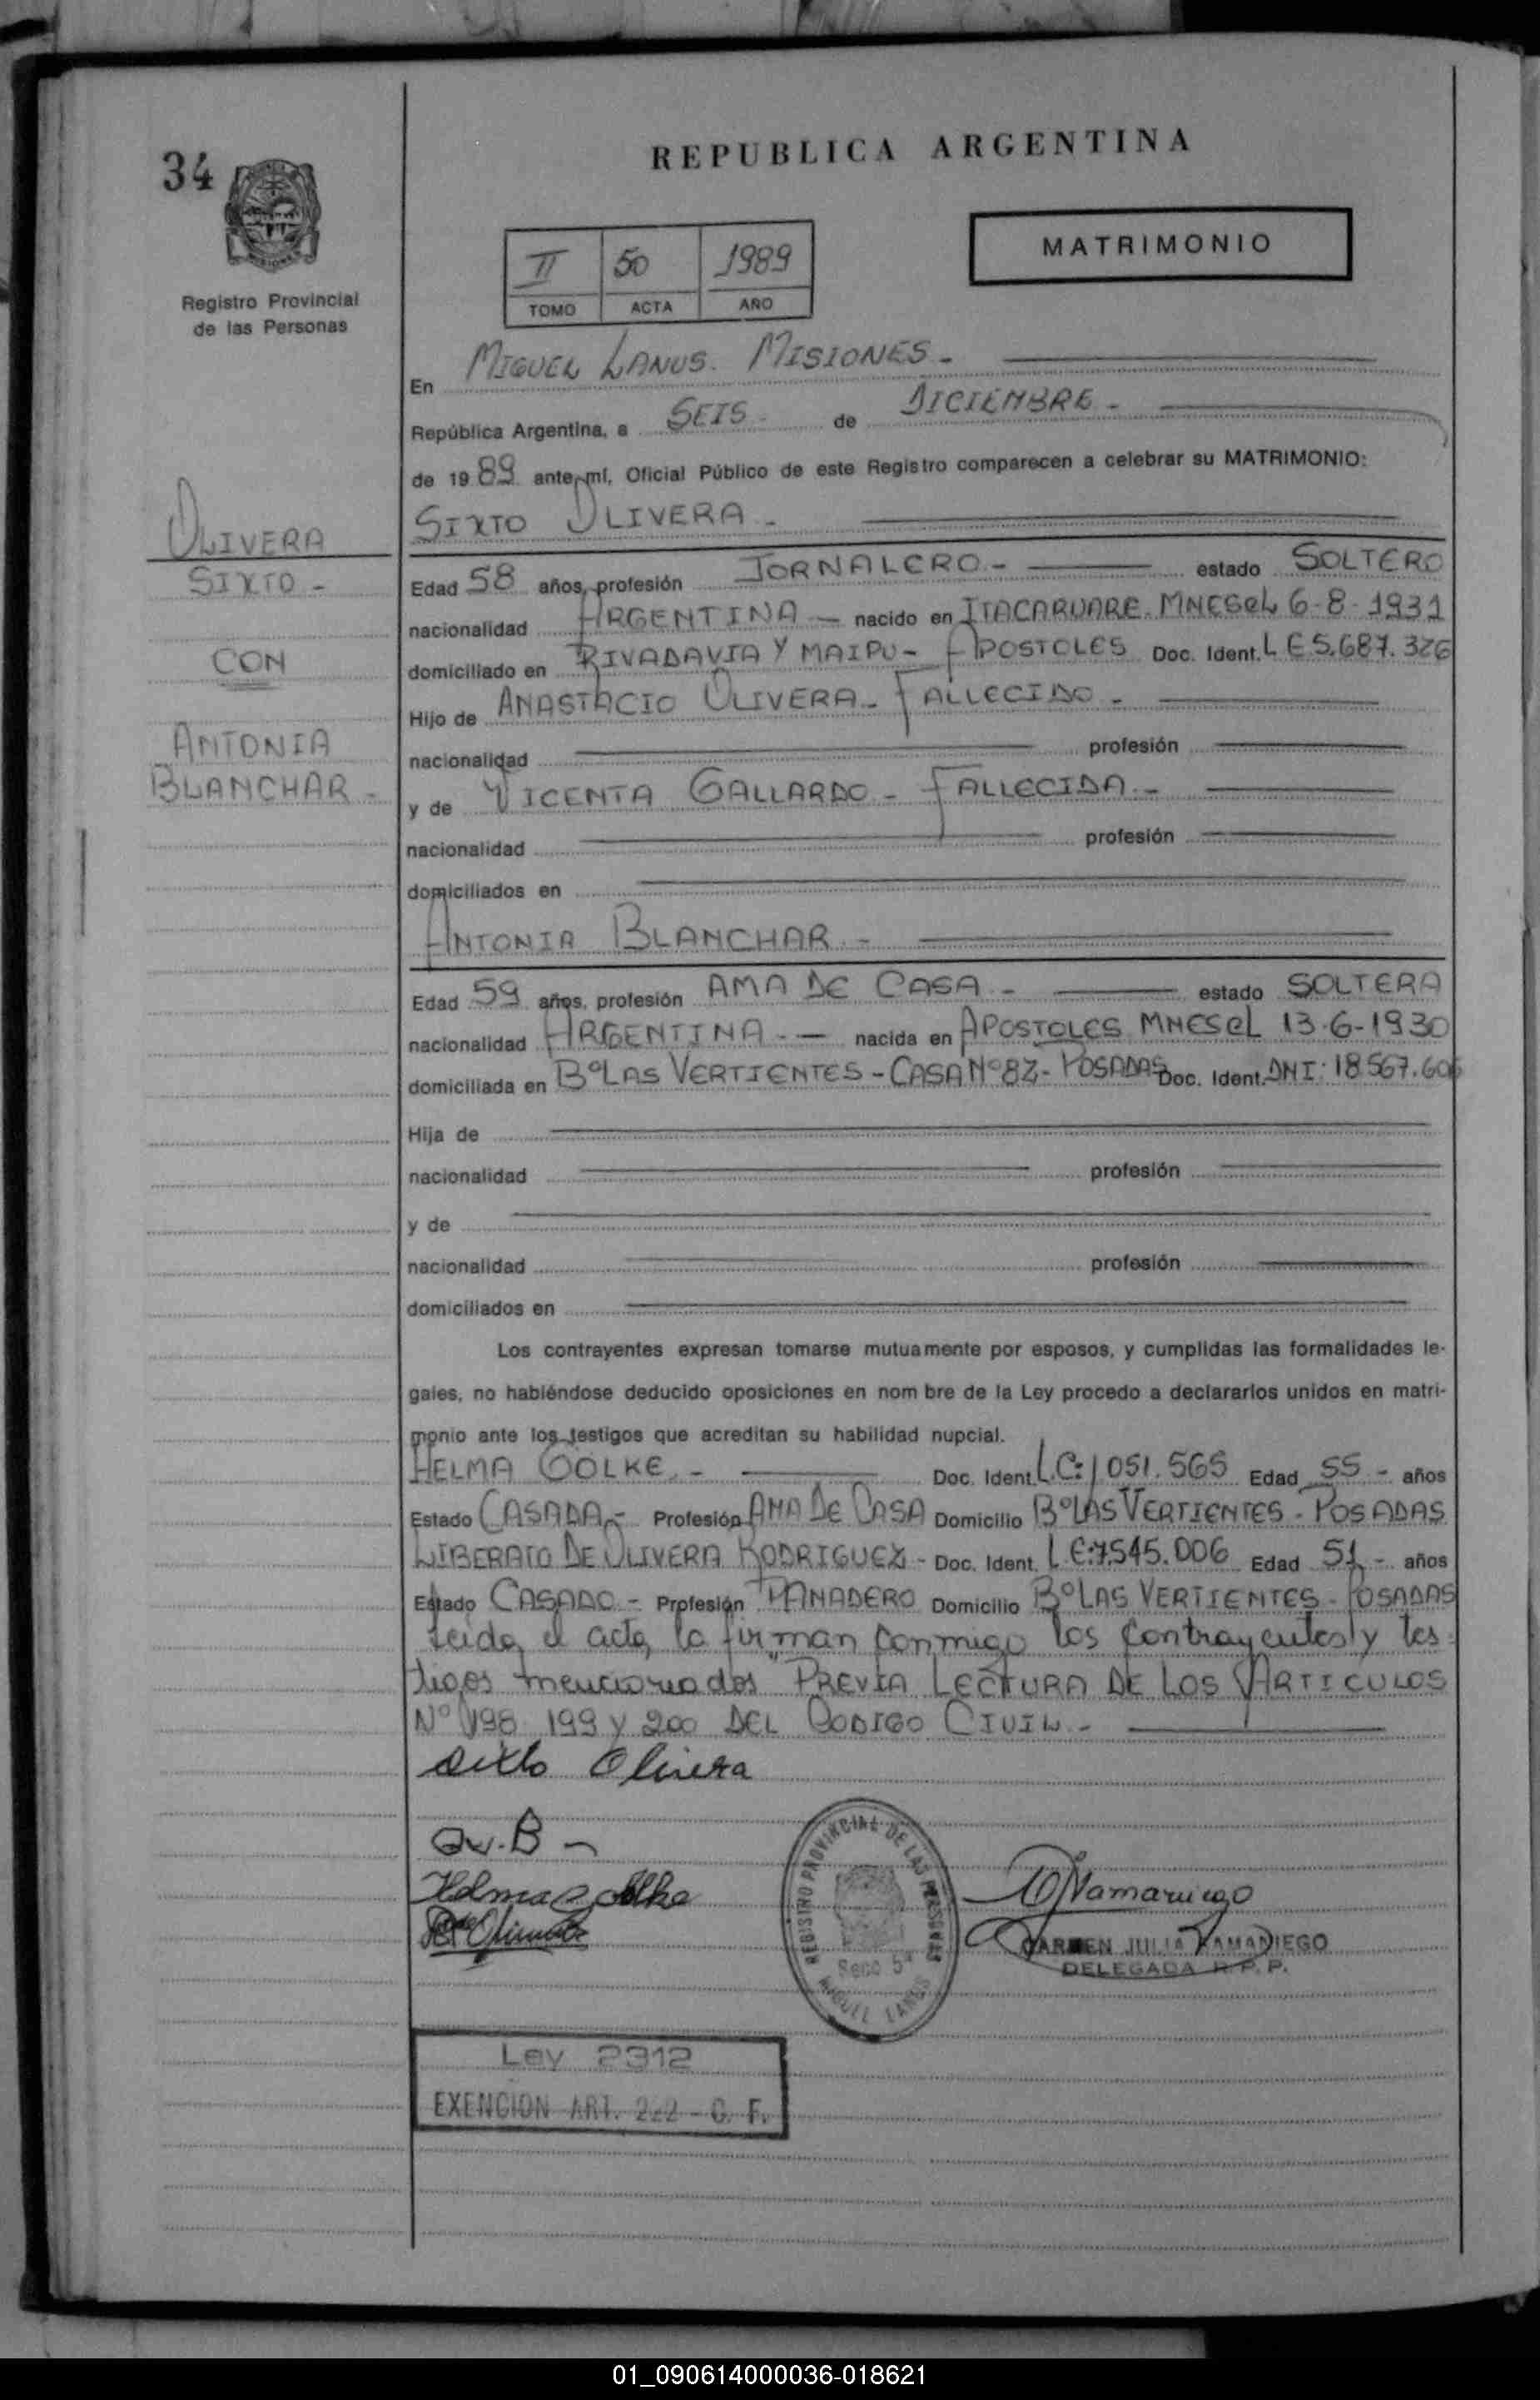 34
REPUBLICA ARGENTINA
MATRIMONIO
II 50 1989
TOMO ACTA AÑO
Registro Provincial
de las Personas
En MIGUEL LANUS. MISIONES -
República Argentina, a SEIS - de DICIEMBRE -
de 19 89 ante mí, Oficial Público de este Registro comparecen a celebrar su MATRIMONIO:
SIXTO OLIVERA -
OLIVERA
SIXTO -
CON
ANTONIA
BLANCHAR -
Edad 58 años, profesión JORNALERO - estado SOLTERO
nacionalidad ARGENTINA - nacido en ITACARUARE. MNES el 6-8-1931
domiciliado en RIVADAVIA Y MAIPU - APOSTOLES Doc. Ident. L E 5.687.326
Hijo de ANASTACIO OLIVERA - FALLECIDO -
nacionalidad profesión
y de VICENTA GALLARDO - FALLECIDA -
nacionalidad profesión
domiciliados en
ANTONIA BLANCHAR -
Edad 59 años, profesión AMA DE CASA - estado SOLTERA
nacionalidad ARGENTINA - nacida en APOSTOLES MNES el 13-6-1930
domiciliada en Bº LAS VERTIENTES - CASA Nº 82 - POSADAS Doc. Ident. DNI: 18.567.606
Hija de
nacionalidad profesión
y de
nacionalidad profesión
domiciliados en
Los contrayentes expresan tomarse mutuamente por esposos, y cumplidas las formalidades le-
gales, no habiéndose deducido oposiciones en nom bre de la Ley procedo a declararlos unidos en matri-
monio ante los testigos que acreditan su habilidad nupcial.
HELMA GOLKE - Doc. Ident. L.C: 1051.565 Edad 55 - años
Estado CASADA - Profesión AMA DE CASA Domicilio Bº LAS VERTIENTES - POSADAS
LIBERATO DE OLIVERA RODRIGUEZ - Doc. Ident. L.E: 7.545.006 Edad 51 - años
Estado CASADO - Profesión PANADERO Domicilio Bº LAS VERTIENTES - POSADAS
Leida el acta, la firman conmigo los contrayentes y tes-
tigos mencionados "PREVIA LECTURA DE LOS ARTICULOS
Nº 198 199 Y 200 DEL CODIGO CIVIL -
Sixto Olivera
REGISTRO PROVINCIAL DE LAS PERSONAS
Secc 5ª
MIGUEL LANUS
CARMEN JULIA MAMANIEGO
DELEGADA R. P. P.
Ley 2312
EXENCION ART. 222 - C. F.
01_090614000036-018621